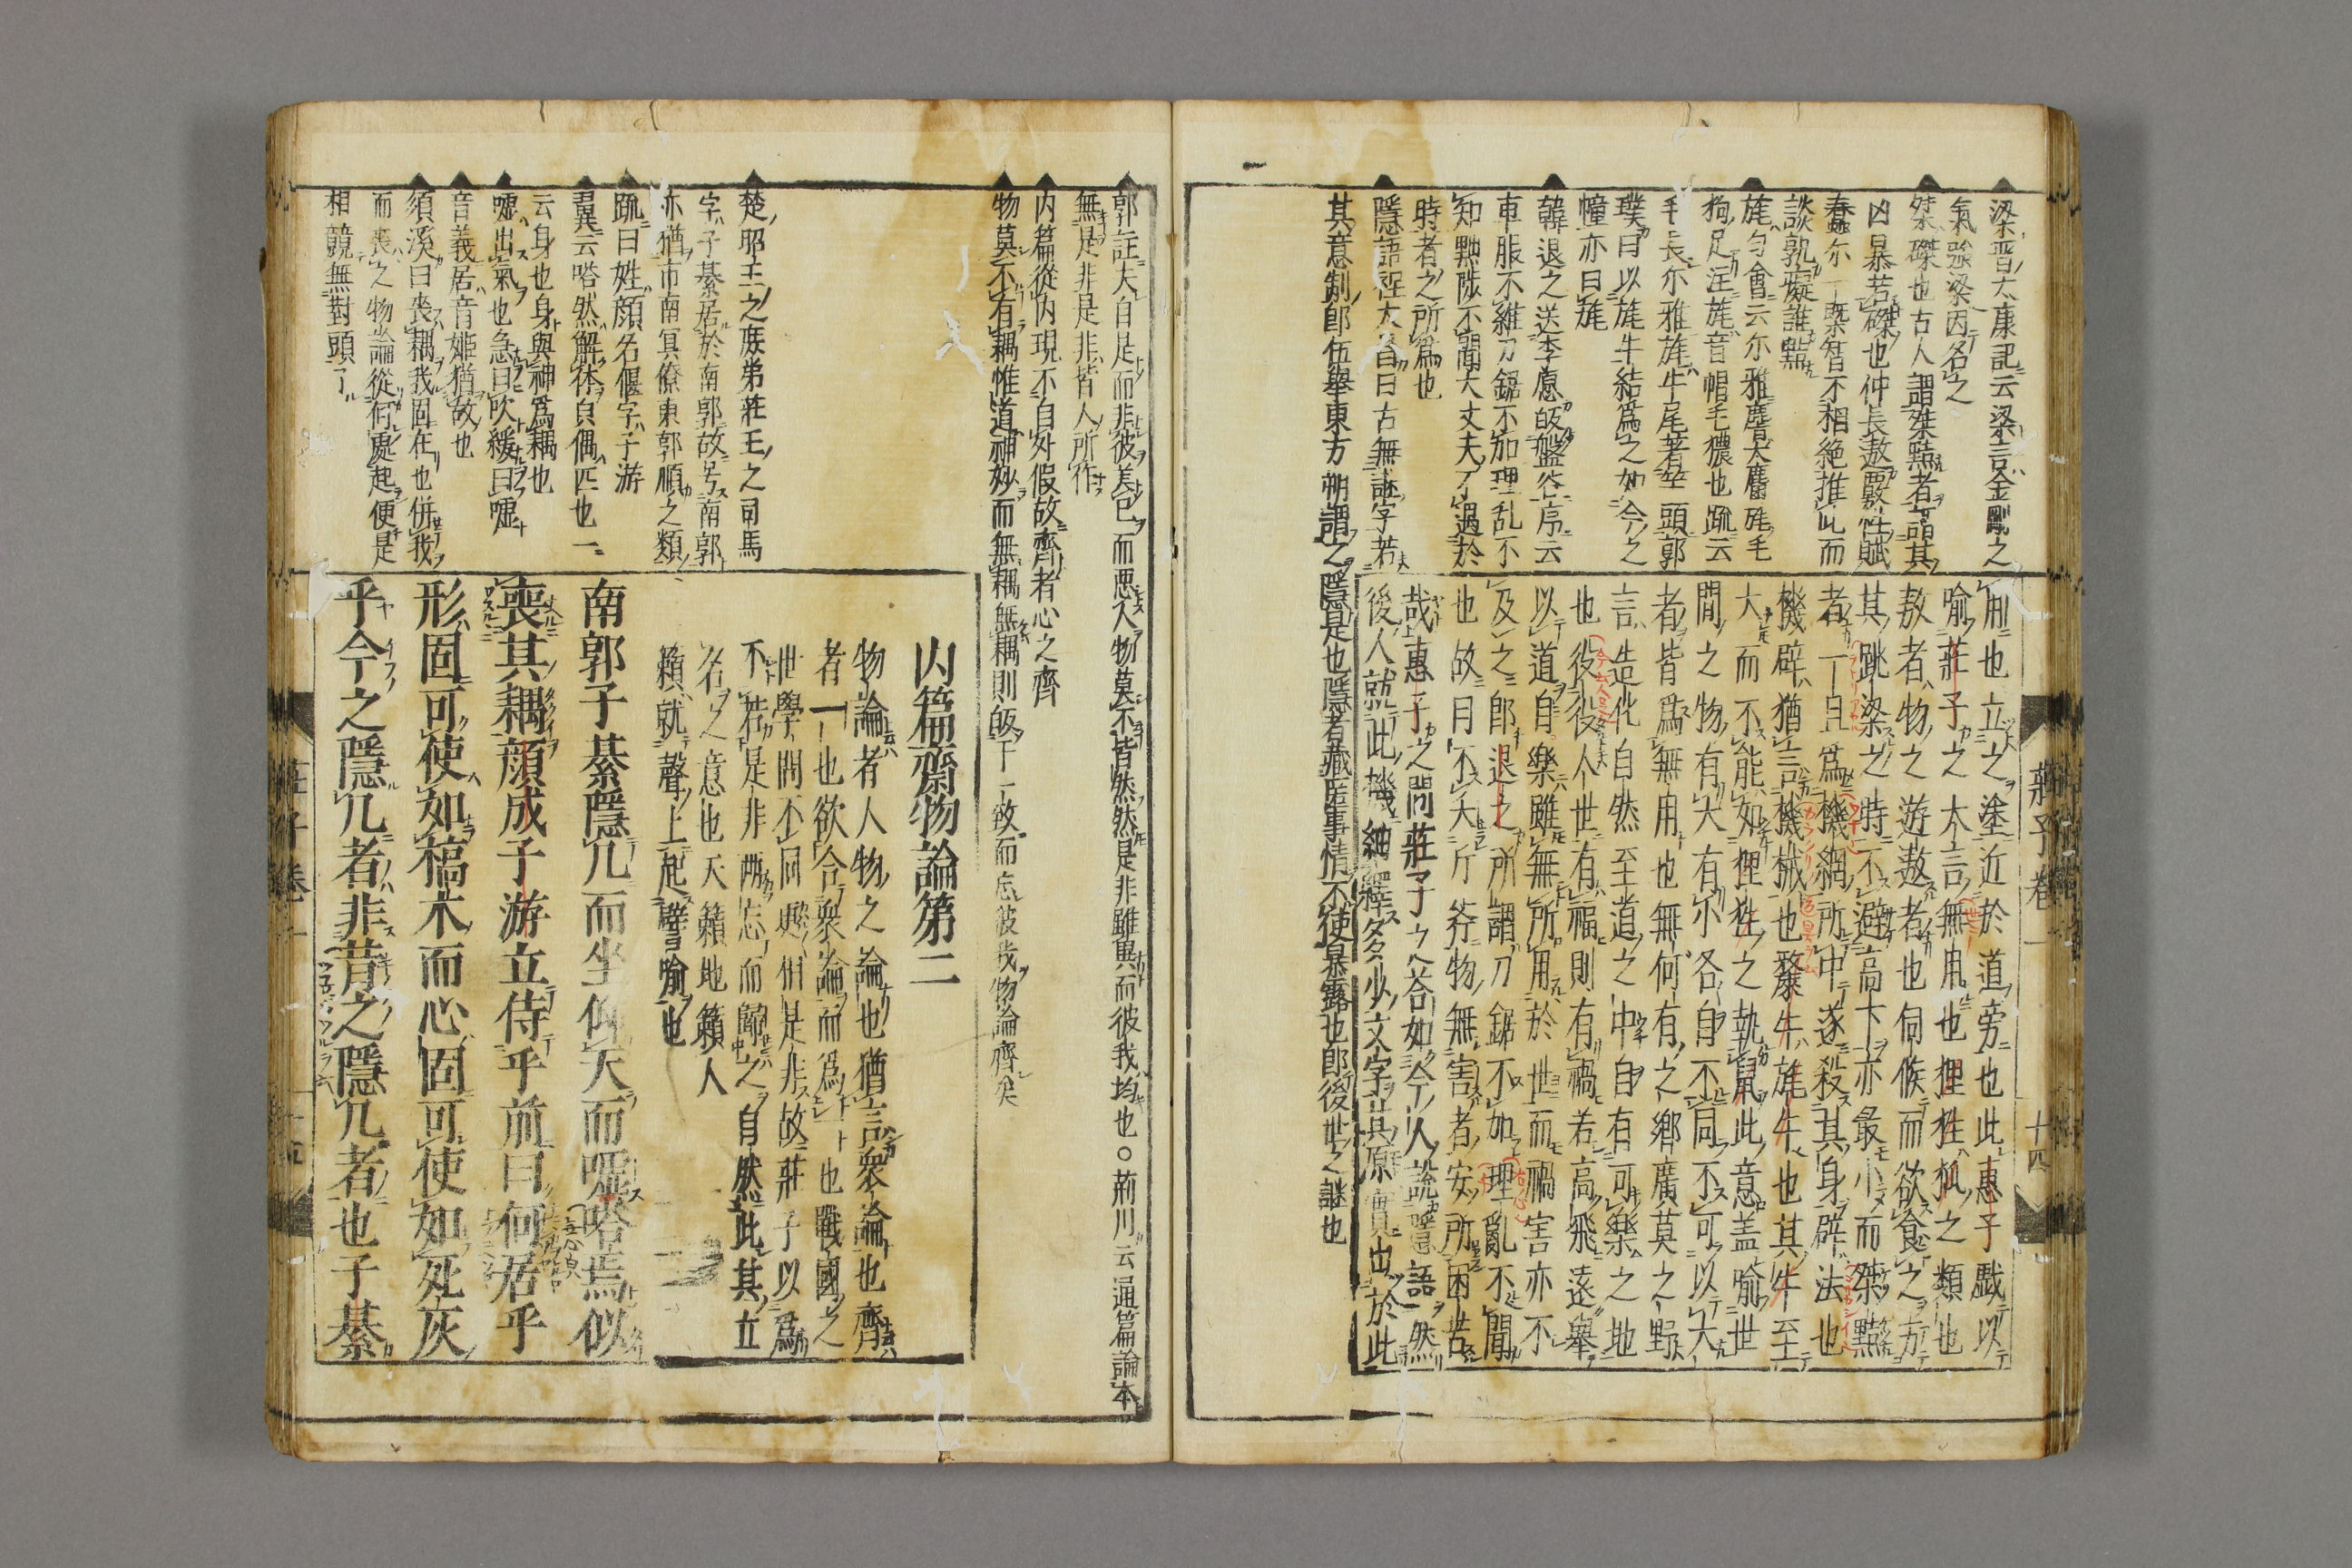 梁晋太康記云梁言金剛之
氣強梁因名之
桀磔也古人謂桀黠者言其
凶暴若磔也仲長敖覈性賦
春蟲尓一槩智不相絶推此而
談孰癡誰黠
旄勻會云尓雅麾犬麕旄毛
狗足注旄音帽毛㺜也疏云
毛長尓雅旄牛尾著竿頭郭
璞曰以旄牛結爲之如今之
幢亦曰旄
韓退之送李愿皈盤谷序云
車服不維刀鋸不加理乱不
知黜陟不聞大丈夫不遇於
時者之所爲也
隱語程大昌曰古無謎字若
其意制卽伍舉東方朔謂之隱是也隱者藏匿事情不使暴露也卽後世之謎也
用也立之塗近於道旁也此惠子戯以
喻莊子之大言無用也狸狌狐之類也
敖者物之遊遨者也伺候而欲食之方
其跳梁之時不避高下亦最小而桀黠
者一旦爲機網所中遂殺其身辟法也
機辟猶言機械也斄牛旄牛也其牛至
大而不能如狸狌之執鼠此意盖喻世
間之物有大有小各自不同不可以大
者皆爲無用也無何有之鄕廣莫之野
言造化自然至道之中自有可樂之地
也役役人世有福則有禍若高飛遠舉
以道自樂雖無所用於世而禍害亦不
及之卽退之所謂刀鋸不加理亂不聞
也故曰不夭斤斧物無害者安所困苦
哉惠子之問莊子之荅如今人說隱語然
後人就此機紬繹多少文字其原實出於此
莊子卷一
十四
郭註夫自是而非彼美已而悪人物莫不皆然然是非雖異而彼我均也○荊川云通篇論本
無是非是非皆人所作
内篇從内現不自外假故齊者心之齊
物莫不有耦惟道神妙而無耦無耦則皈于一致而忘彼我物論齊矣
楚昭王之庶弟莊王之司馬
字子綦居於南郭故号南郭
亦猶市南冥僚東郭順之類
疏曰姓顔名偃字子游
異云嗒然解体貞偶匹也一
云身也身與神爲耦也
嘘出氣也急曰吹緩曰嘘
音義居音姫猶故也
須溪曰喪耦我固在也併我
而喪之物論從何處起便是
相競無對頭了
内篇齊物論第二
物論者人物之論也猶言衆論也齊
者一也欲合衆論而爲一也戰國之
世學問不同更相是非故莊子以爲
不若是非兩忘而歸之自然此其立
名之意也天籟地籟人
籟就聲上起譬喻也
南郭子綦隱几而坐仰天而嘘嗒焉似
喪其耦顔成子游立侍乎前曰何居乎
形固可使如槁木而心固可使如死灰
乎今之隱几者非昔之隱几者也子綦
莊子卷一
十五